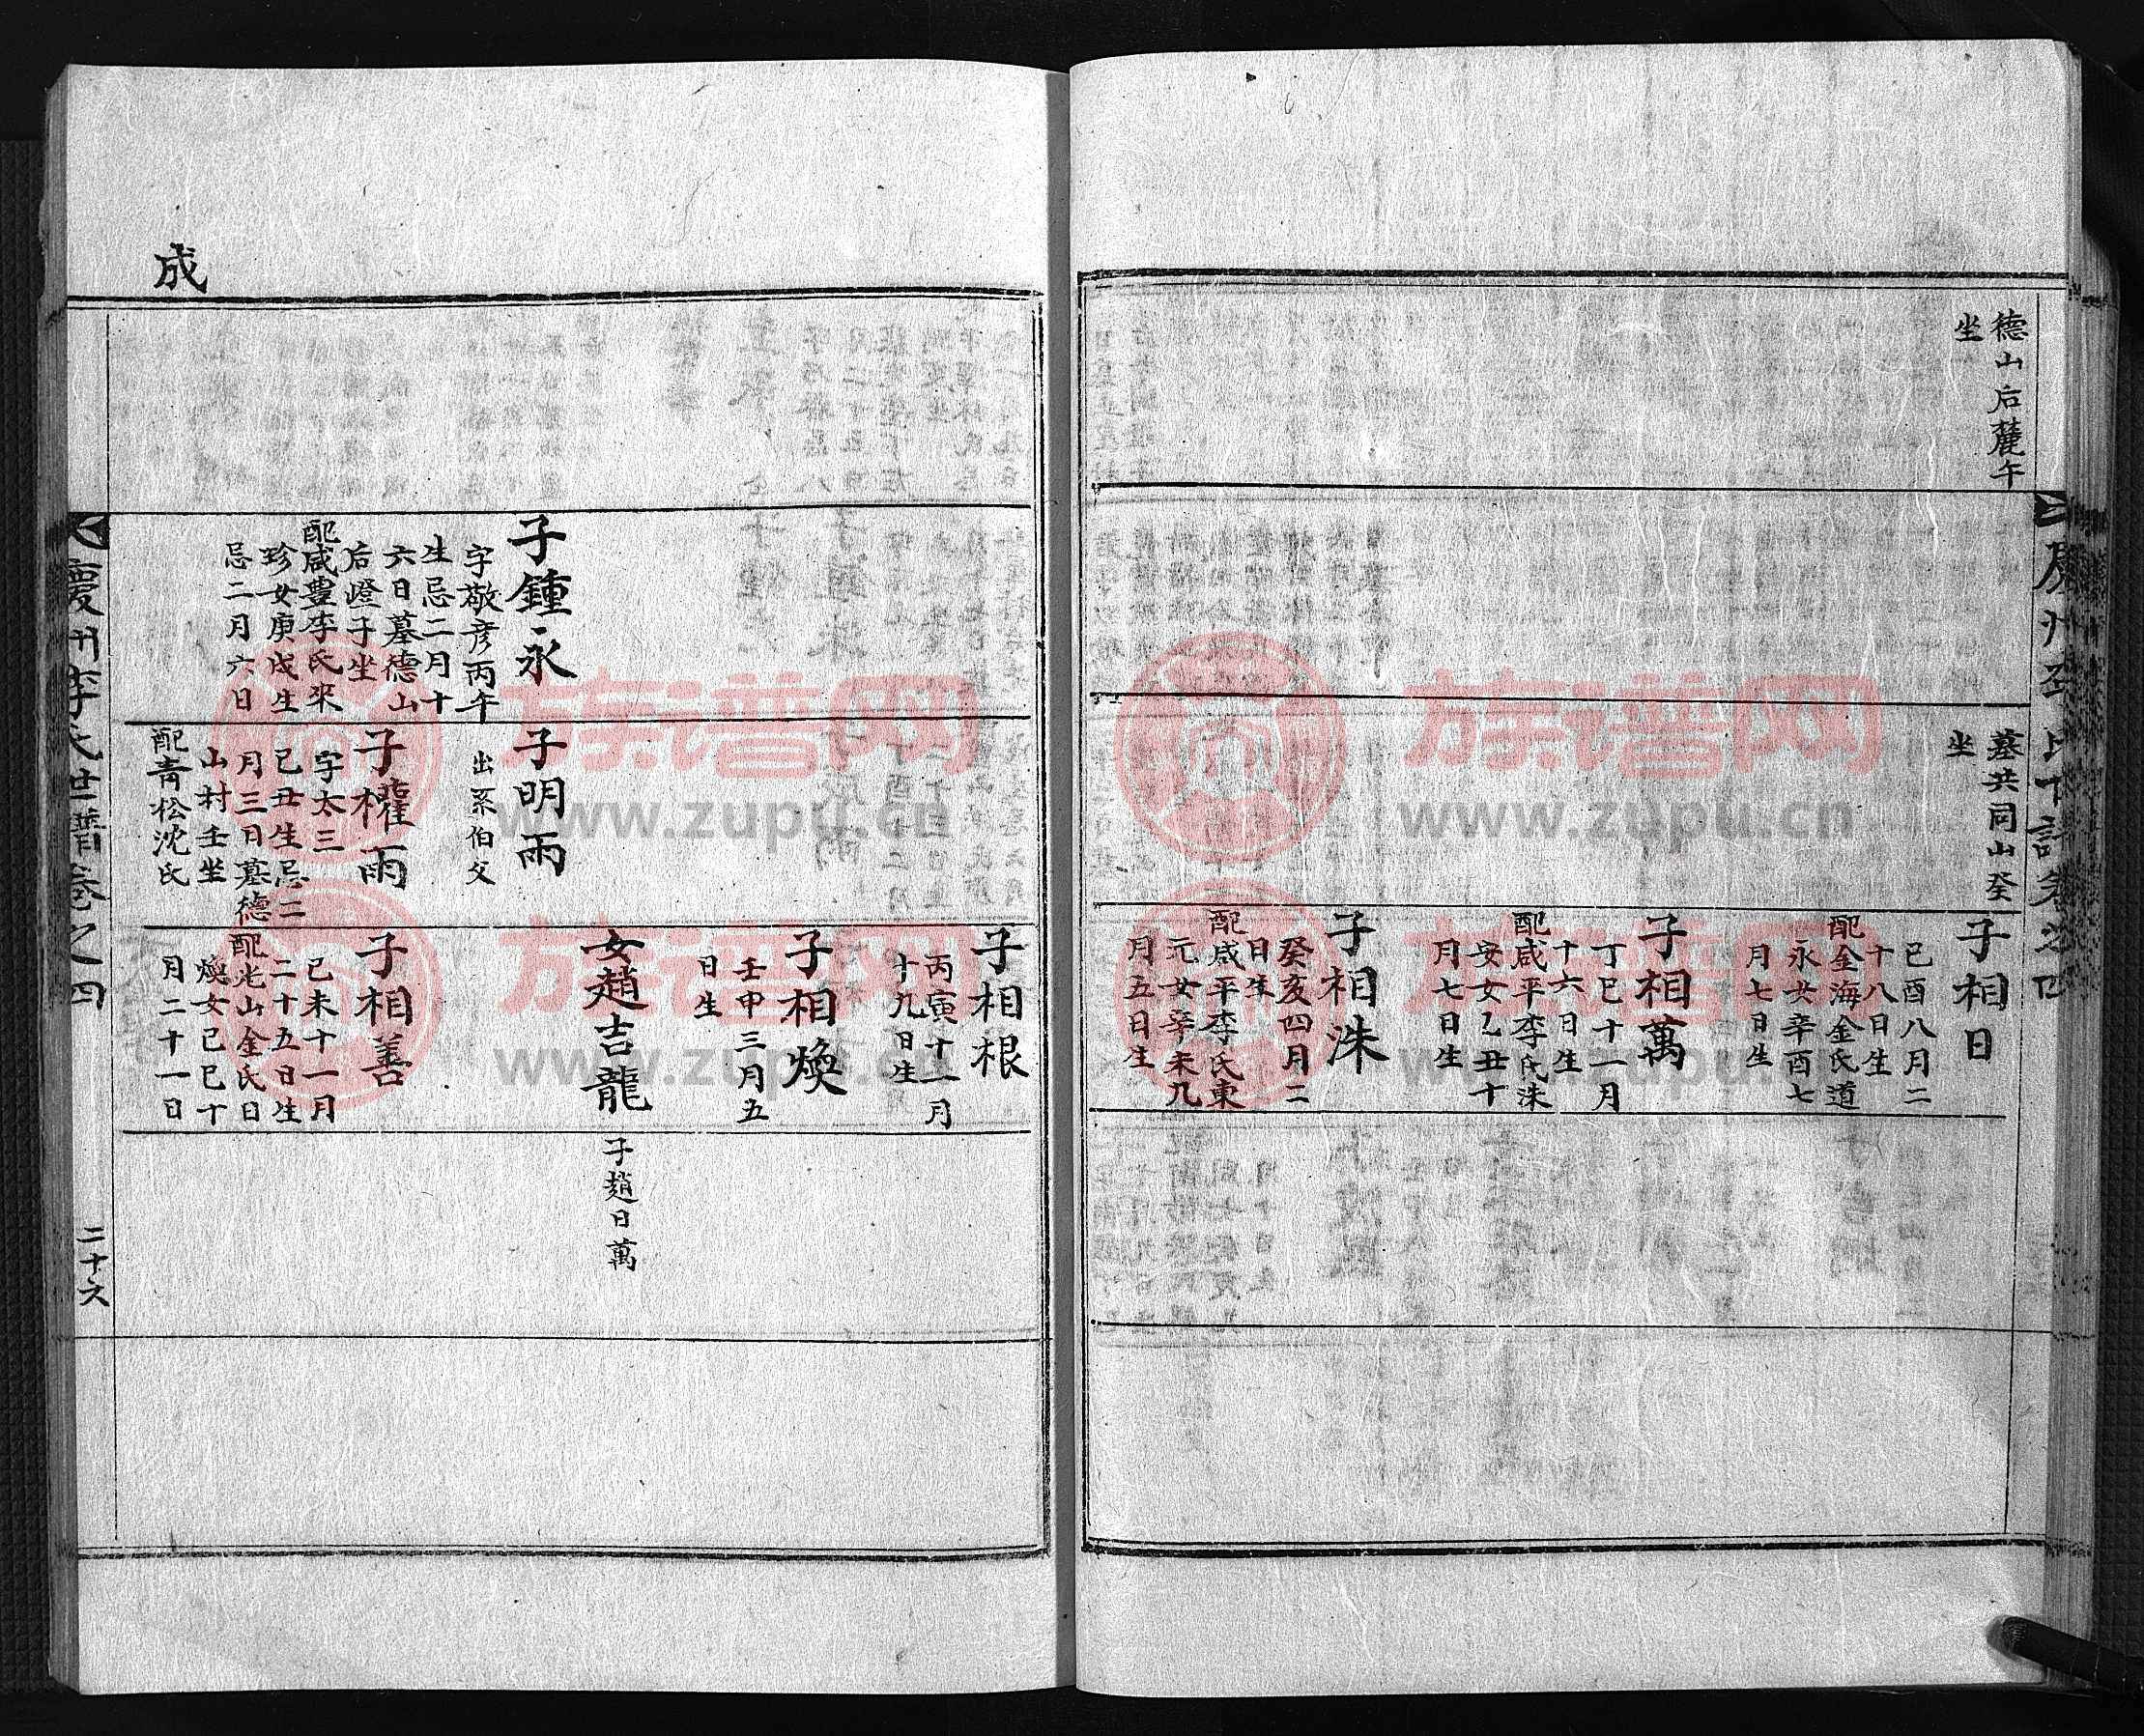 德山后麓午
坐
墓共同山癸
坐
子相日
己酉八月二
十八日生
配金海金氏道
永女辛酉七
月七日生
子相萬
丁巳十一月
十六日生
配咸平李氏洙
安女乙丑十
月七日生
子相洙
癸亥四月二
日生
配咸平李氏東
元女辛未九
月五日生
子相根
丙寅十一月
十九日生
子相煥
壬申三月五
日生
女趙吉龍
子趙日萬
子鍾永
字敬彦丙午
生忌二月十
六日墓德山
后嶝子坐
配咸豊李氏來
珍女庚戌生
忌二月六日
子明雨
出系伯父
子權雨
字太三
己丑生忌二
月三日墓德
山村壬坐
配青松沈氏
子相善
己未十一月
二十五日生
配光山金氏日
煥女己巳十
月二十一日
成
慶州李氏世譜卷之四
二十六
族谱网
www.zupu.cn
族谱网
www.zupu.cn
族谱网
www.zupu.cn
族谱网
www.zupu.cn